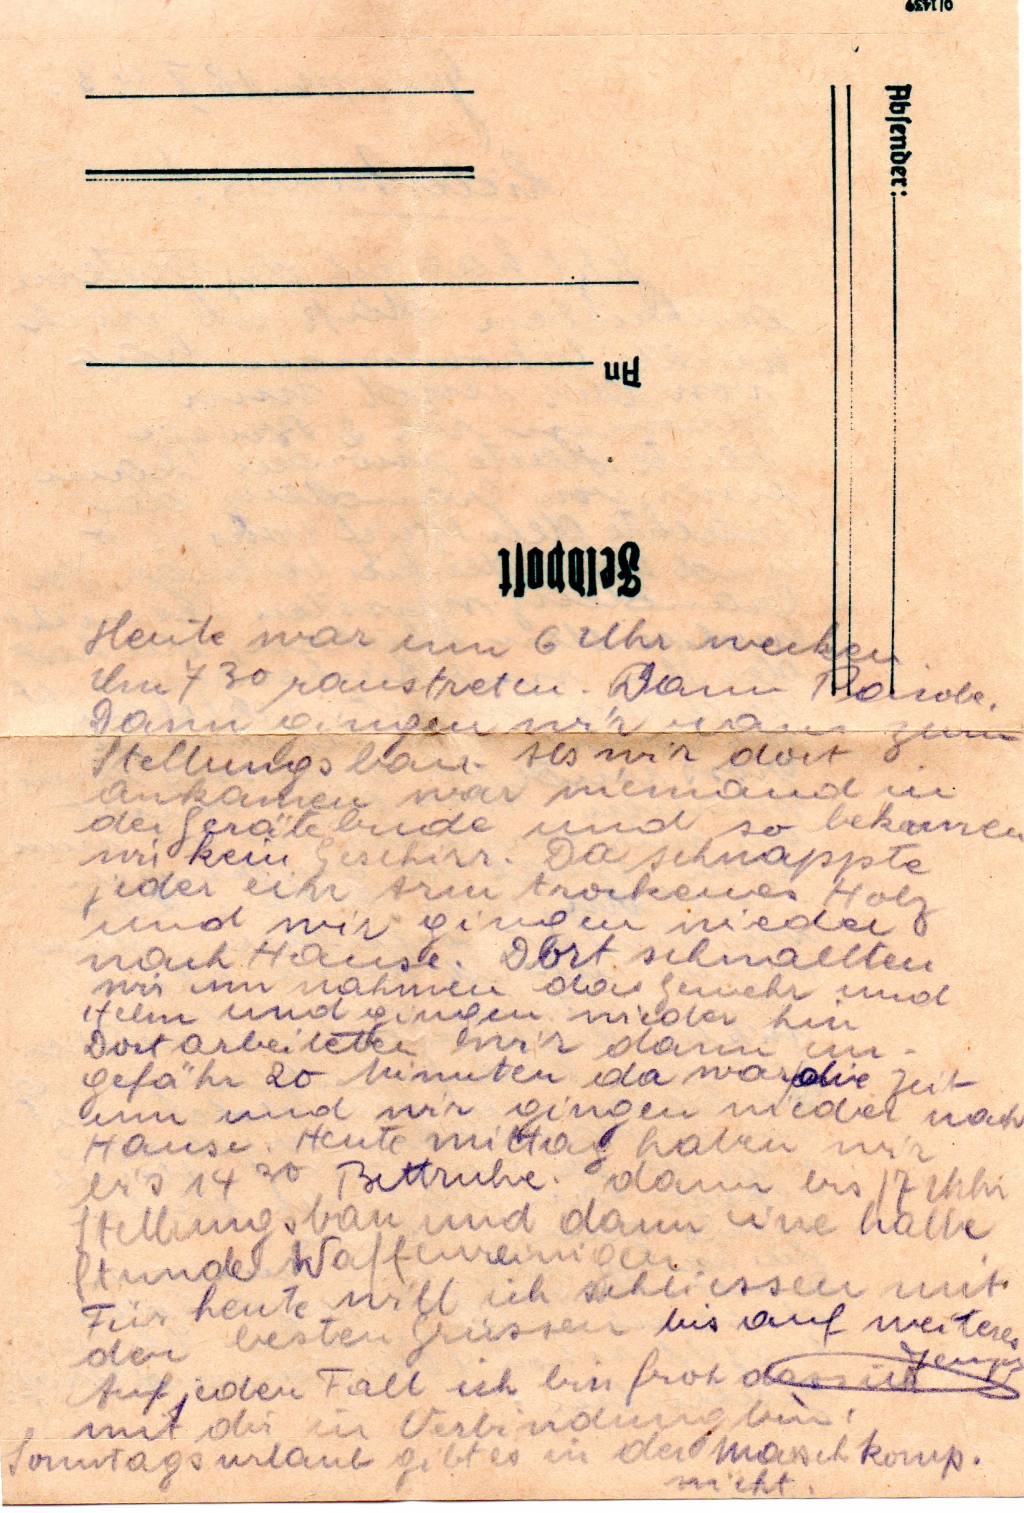 0/1439
Absender:
An
Feldpost
Heute war um 6 Uhr wecken.
Um 7 30 raustreten. Dann Parole.
Dann gingen wir raus zum
Stellungsbau. Als wir dort
ankamen war niemand in
der Gerätebude und so bekamen
wir kein Geschirr. Da schnappte
jeder ein Arm trockenes Holz
und wir gingen wieder
nach Hause. Dort schnallten
wir um nahmen das Gewehr und
Helm und gingen wieder hin
Dort arbeiteten wir dann un-
gefähr 20 Minuten da war die Zeit
um und wir gingen wieder nach
Hause. Heute mittag haben wir
bis 14 30 Bettruhe. dann bis 17 Uhr
Stellungsbau und dann eine halbe
Stunde Waffenreinigen.
Für heute will ich schliessen mit
den besten Grüssen bis auf weiteres
Auf jeden Fall ich bin froh dass ich
mit dir in Verbindung bin!
Sonntagsurlaub gibt es in der Marschkomp.
nicht.